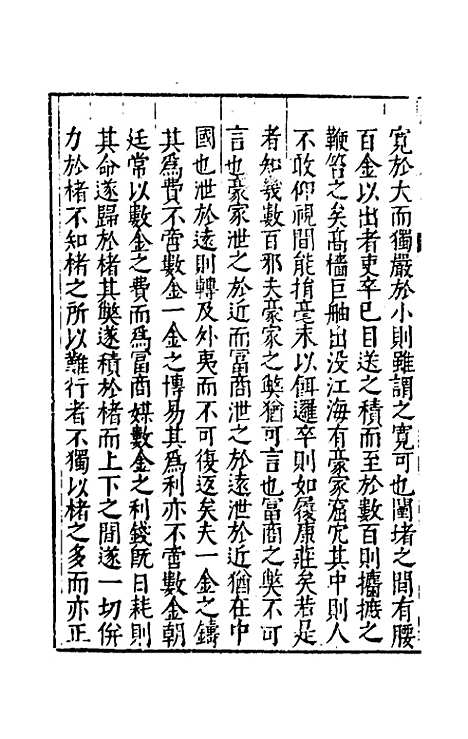 寛於大而獨嚴於小則雖謂之寛可也闤堵之間有腰
百金以出者吏卒已目送之積而至於數百則攟摭之
鞭笞之矣髙檣巨舳出没江海有豪家窟穴其中則人
不敢仰視間能捐毫末以餌邏卒則如履康莊矣若是
者知㡬數百邪夫豪家之獘猶可言也冨商之獘不可
言也豪家泄之於近而冨商泄之於逺泄於近猶在中
國也泄於逺則轉及外夷而不可復返矣夫一金之鑄
其爲費不啻數金一金之博易其爲利亦不啻數金朝
廷常以數金之費而爲冨商媒數金之利錢旣日耗則
其命遂歸於楮其獘遂積於楮而上下之間遂一切併
力於楮不知楮之所以難行者不獨以楮之多而亦正